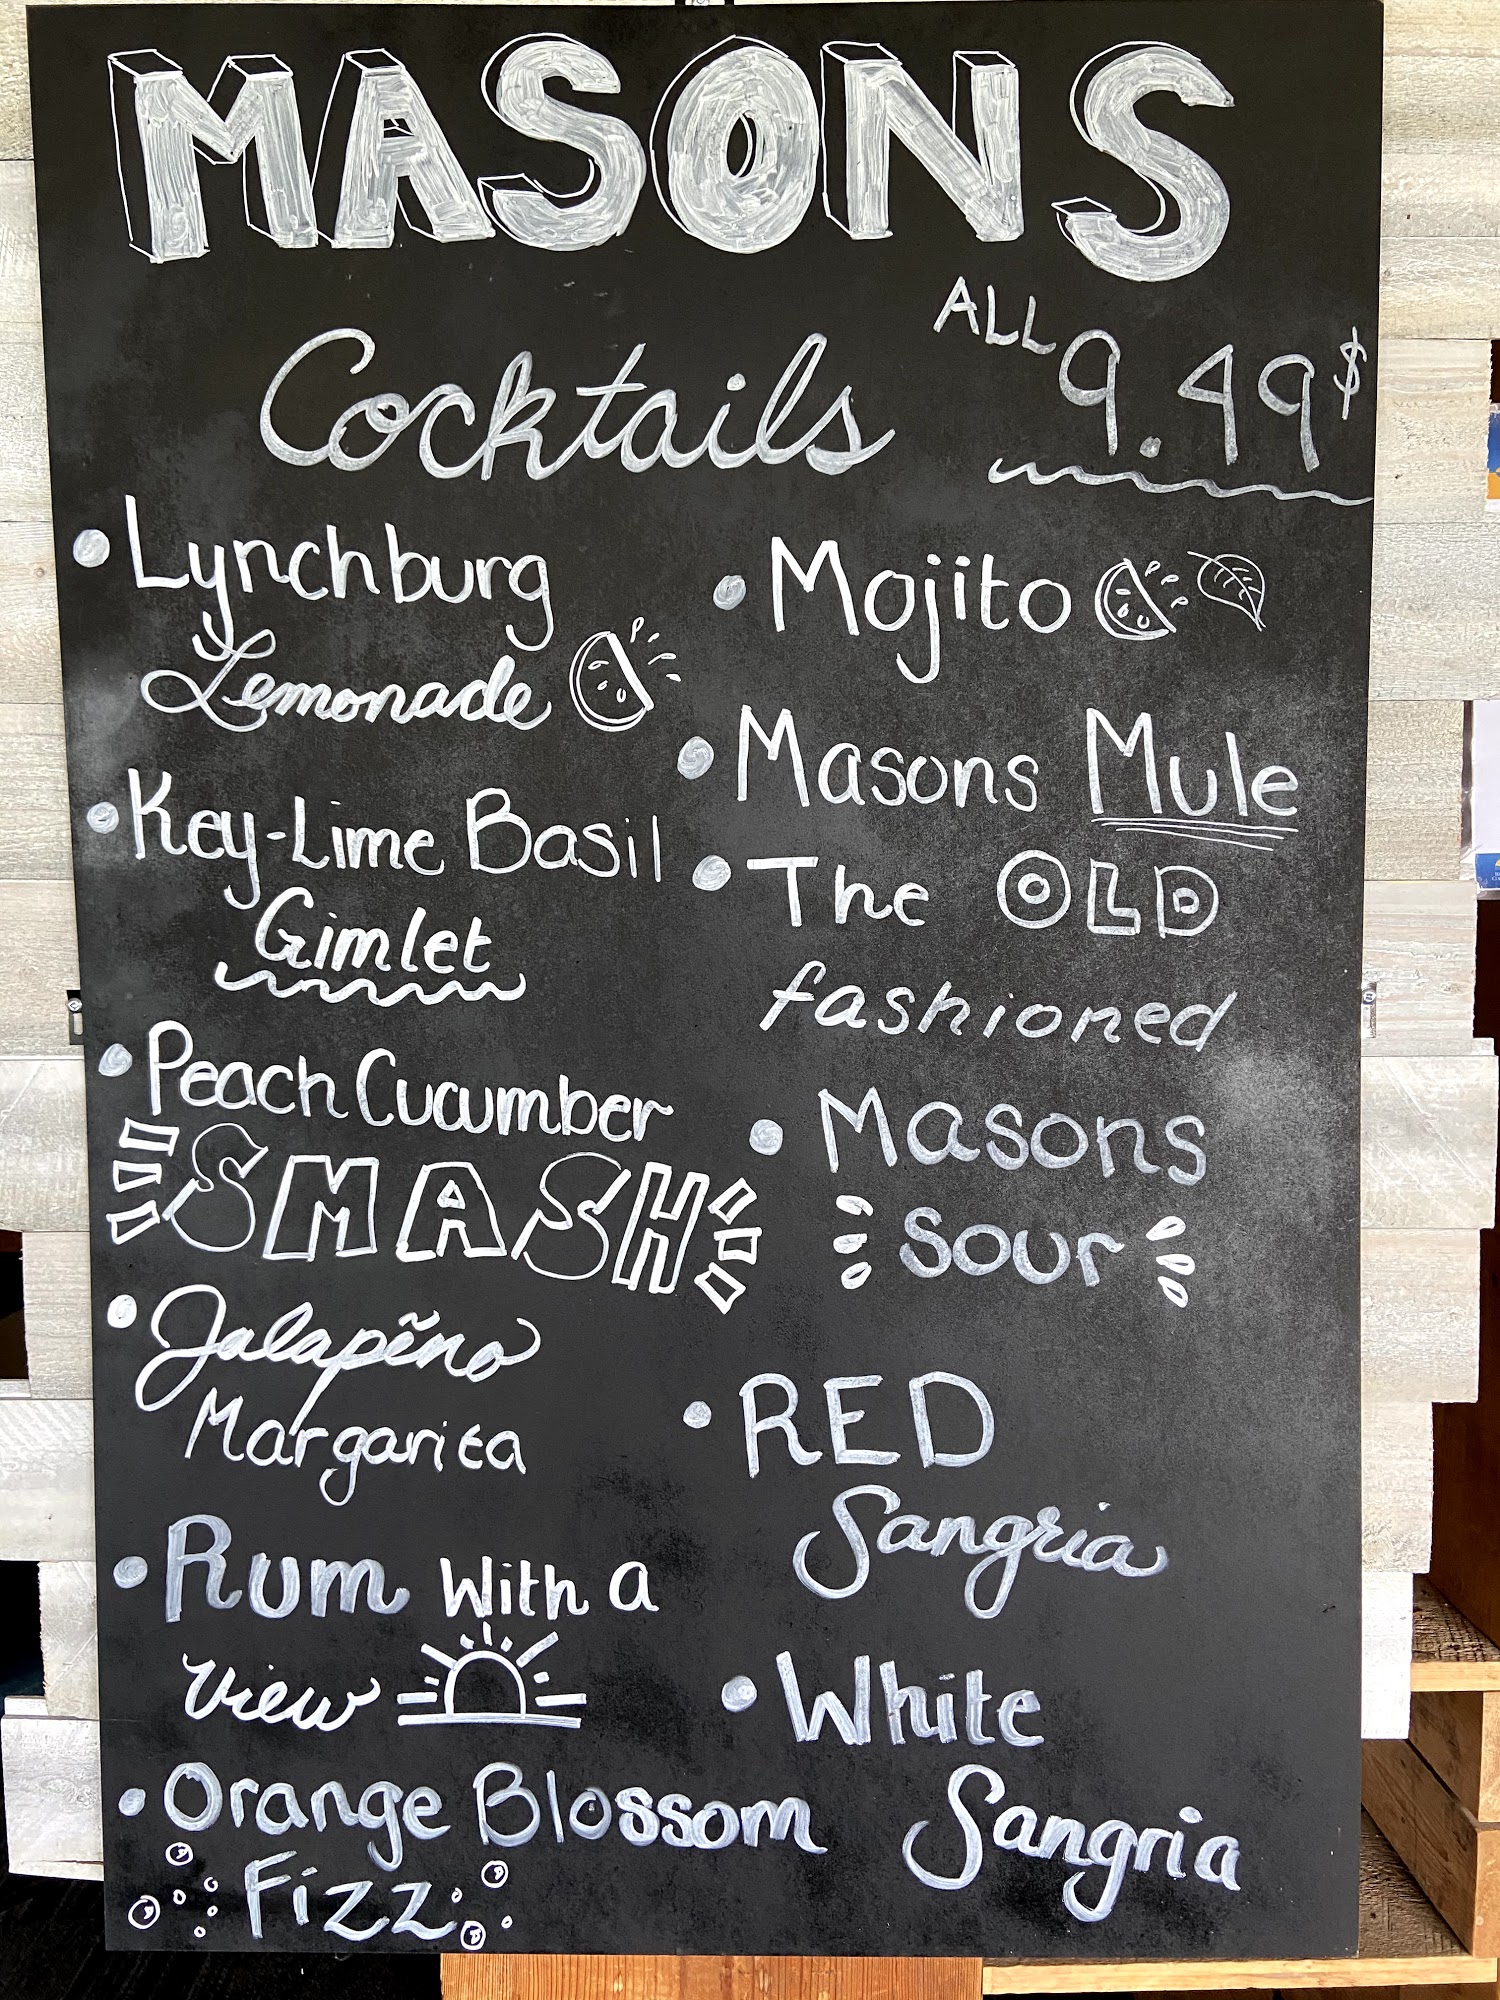 MASONS
Cocktails
ALL 9.49$
Lynchburg
Lemonade
Key-Lime Basil
Gimlet
Peach Cucumber
SMASH
Jalapẽno
Margarita
Rum With a
View
Orange Blossom
Fizz
Mojito
Masons Mule
The OLD
fashioned
Masons
Sour
RED
Sangria
White
Sangria